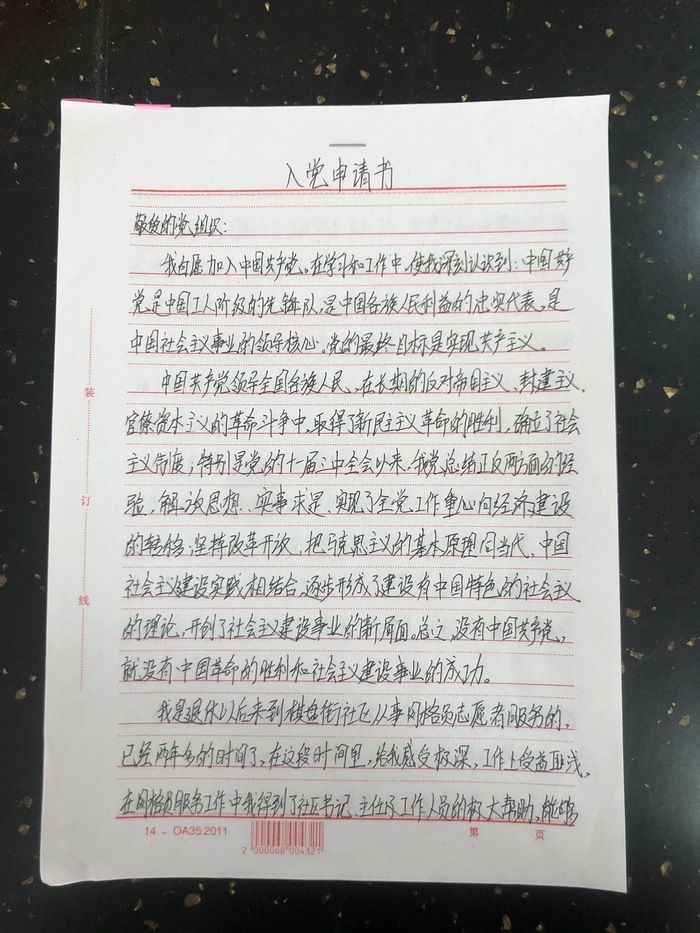 入党申请书
敬爱的党组织：
我自愿加入中国共产党。在学习和工作中，使我深刻认识到：中国共产
党是中国工人阶级的先锋队，是中国各族人民利益的忠实代表，是
中国社会主义事业的领导核心。党的最终目标是实现共产主义。
中国共产党领导全国各族人民，在长期的反对帝国主义、封建主义、
官僚资本主义的革命斗争中，取得了新民主主义革命的胜利，确立了社会
主义制度；特别是党的十一届三中全会以来，我党总结正反两方面的经
验，解放思想、实事求是、实现了全党工作重心向经济建设
的转移，坚持改革开放，把马克思主义的基本原理同当代、中国
社会主义建设实践相结合，逐步形成了建设有中国特色的社会主义
的理论，开创了社会主义建设事业的新局面。总之，没有中国共产党，
就没有中国革命的胜利和社会主义建设事业的成功。
我是退休以后来到棋盘街社区从事网格员志愿者服务的，
已经两年多的时间了，在这段时间里，给我感受极深，工作上受益匪浅，
在网格员服务工作中我得到了社区书记、主任及工作人员的极大帮助，能够
装
订
线
14 - OA35.2011
2 000068 004321
第 页